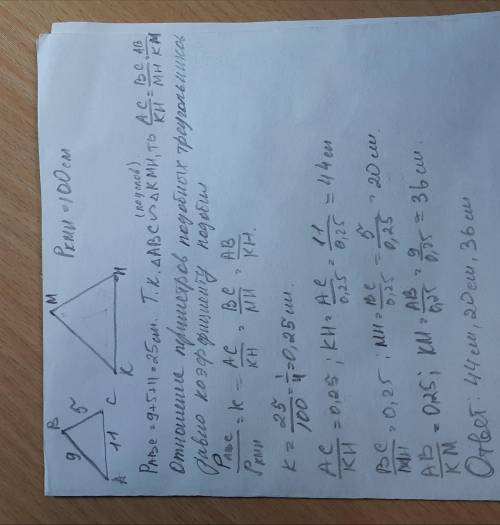 B M P КМН = 100 см
9 5
A 11 C K H
P ABC = 9+5+11 = 25 см. Т.к. △ABC ∾ △KMH, (по услов) то AC/KH = BC/MH = AB/KM
Отношение периметров подобных треугольников
равно коэффициенту подобия
P ABC/P КМН = K = AC/KH = BC/NH = AB/KH.
K = 25/100 = 1/4 = 0,25 см.
AC/KH = 0,25 ; KH = AC/0,25 = 11/0,25 = 44 см
BC/MH = 0,25 ; MH = BC/0,25 = 5/0,25 = 20 см.
AB/KM = 0,25; KM = AB/0,25 = 9/0,25 = 36 см.
Ответ: 44 см, 20 см, 36 см